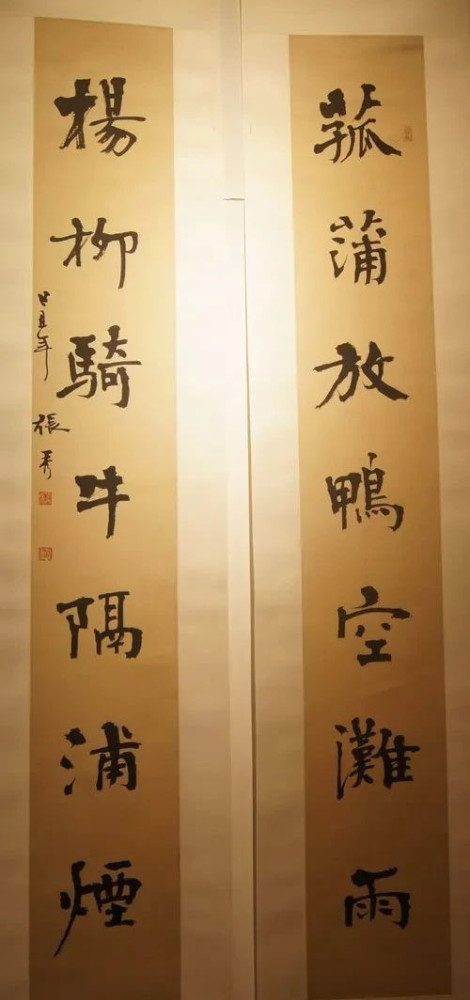 菰蒲放鴨空灘雨
楊柳騎牛隔浦煙
己丑年 張